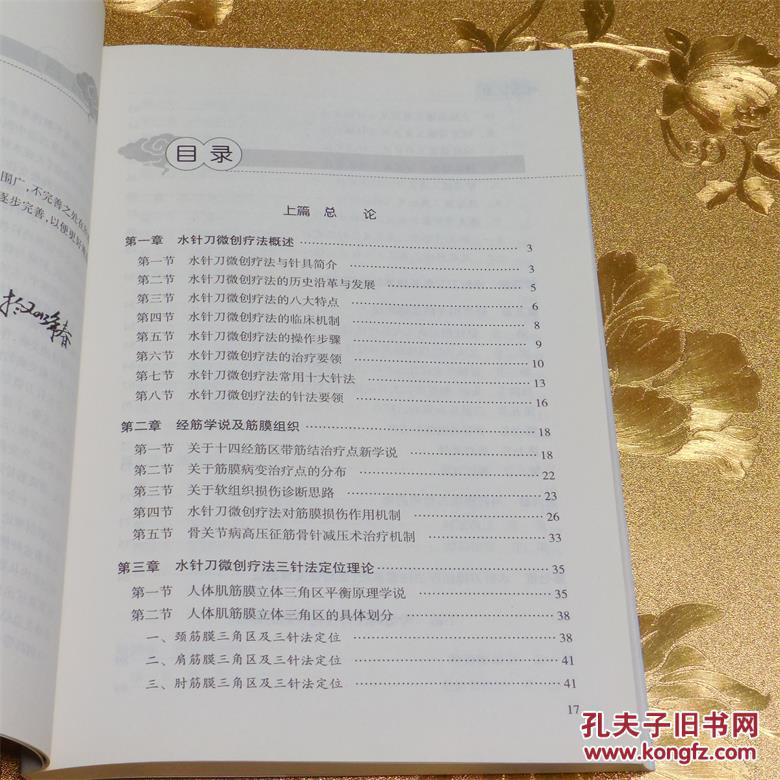 围广，不完善之处在
逐步完善，以便更好
目录
上篇 总 论
第一章 水针刀微创疗法概述 3
第一节 水针刀微创疗法与针具简介 3
第二节 水针刀微创疗法的历史沿革与发展 5
第三节 水针刀微创疗法的八大特点 6
第四节 水针刀微创疗法的临床机制 8
第五节 水针刀微创疗法的操作步骤 9
第六节 水针刀微创疗法的治疗要领 10
第七节 水针刀微创疗法常用十大针法 13
第八节 水针刀微创疗法的针法要领 16
第二章 经筋学说及筋膜组织 18
第一节 关于十四经筋区带筋结治疗点新学说 18
第二节 关于筋膜病变治疗点的分布 22
第三节 关于软组织损伤诊断思路 23
第四节 水针刀微创疗法对筋膜损伤作用机制 26
第五节 骨关节病高压征筋骨针减压术治疗机制 33
第三章 水针刀微创疗法三针法定位理论 35
第一节 人体肌筋膜立体三角区平衡原理学说 35
第二节 人体肌筋膜立体三角区的具体划分 38
一、颈筋膜三角区及三针法定位 38
二、肩筋膜三角区及三针法定位 41
三、肘筋膜三角区及三针法定位 41
17
孔夫子旧书网
www.kongfz.com